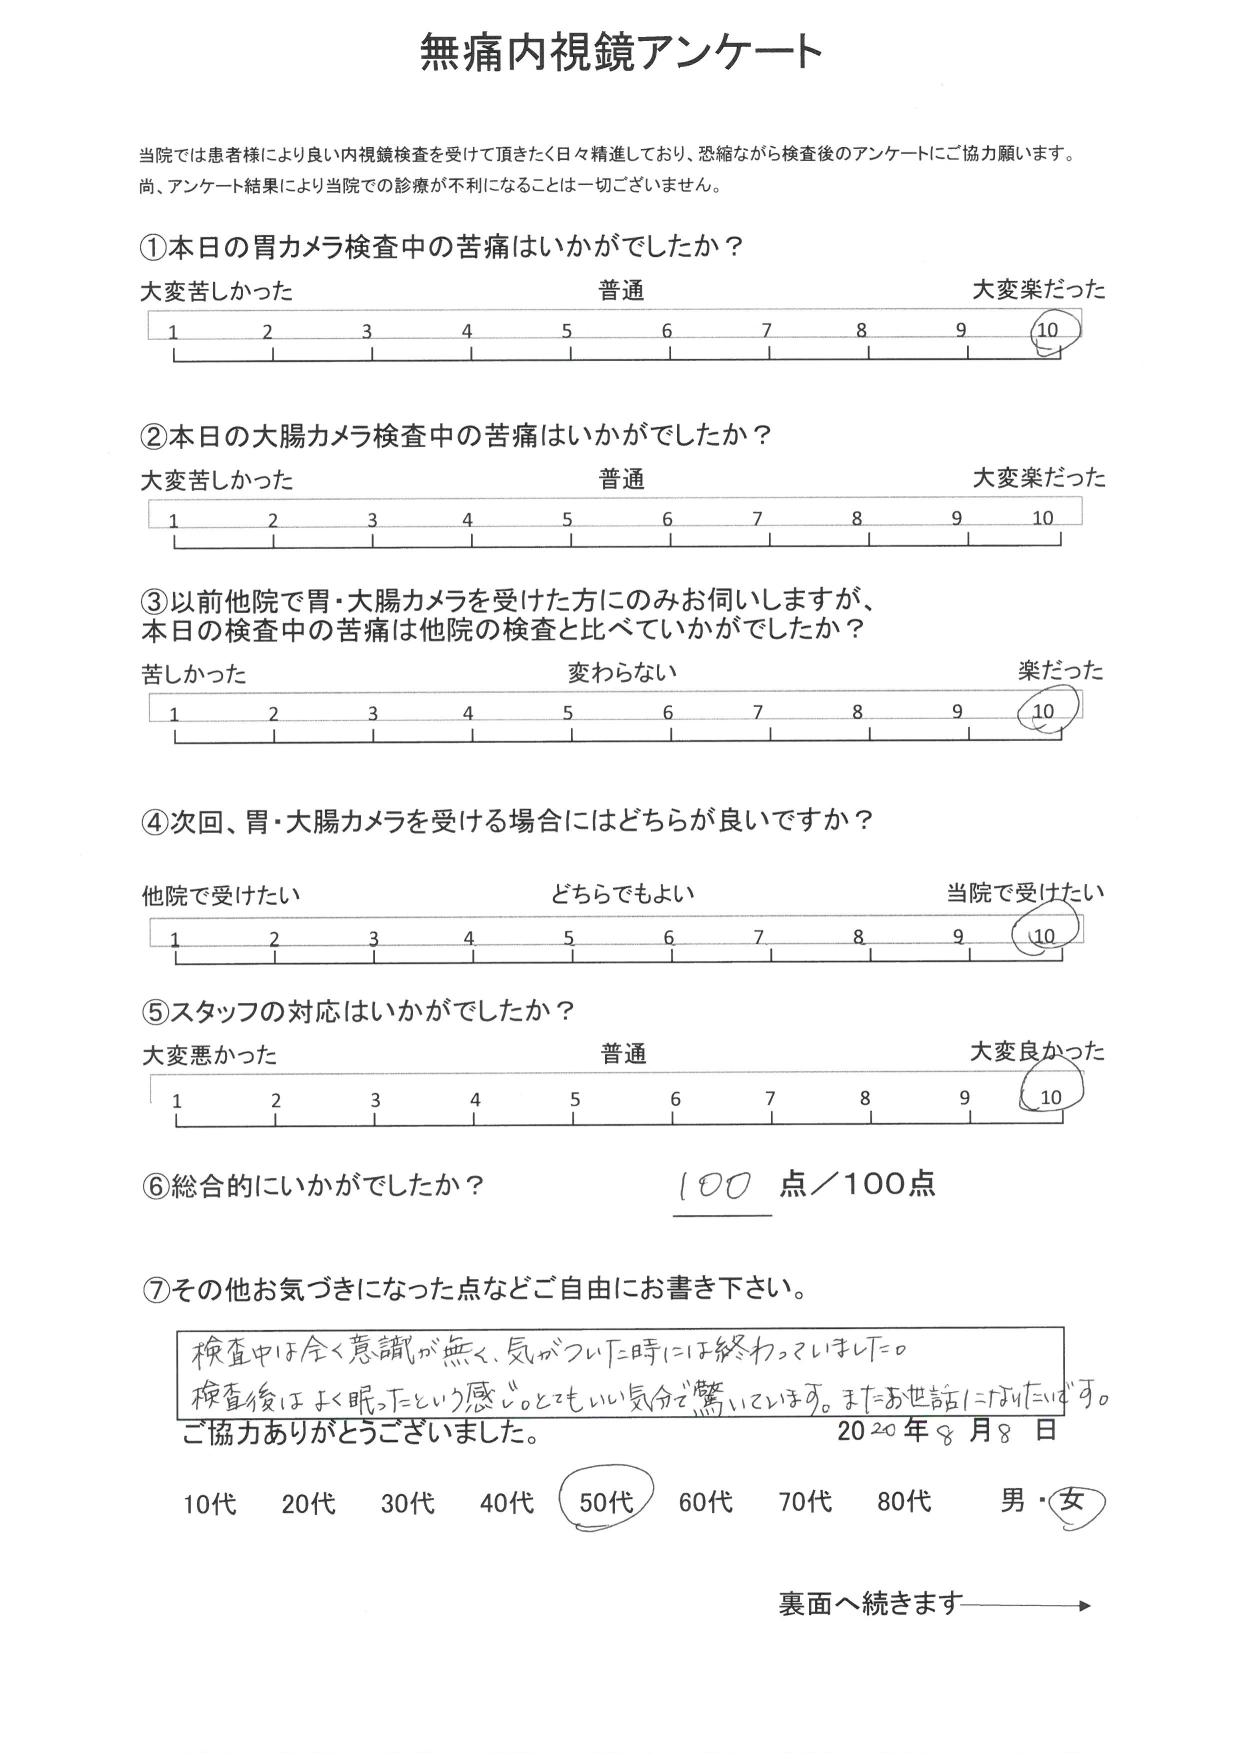 無痛内視鏡アンケート
当院では患者様により良い内視鏡検査を受けて頂きたく日々精進しており、恐縮ながら検査後のアンケートにご協力願います。
尚、アンケート結果により当院での診療が不利になることは一切ございません。
①本日の胃カメラ検査中の苦痛はいかがでしたか？
大変苦しかった 普通 大変楽だった
1 2 3 4 5 6 7 8 9 10
②本日の大腸カメラ検査中の苦痛はいかがでしたか？
大変苦しかった 普通 大変楽だった
1 2 3 4 5 6 7 8 9 10
③以前他院で胃・大腸カメラを受けた方にのみお伺いしますが、
本日の検査中の苦痛は他院の検査と比べていかがでしたか？
苦しかった 変わらない 楽だった
1 2 3 4 5 6 7 8 9 10
④次回、胃・大腸カメラを受ける場合にはどちらが良いですか？
他院で受けたい どちらでもよい 当院で受けたい
1 2 3 4 5 6 7 8 9 10
⑤スタッフの対応はいかがでしたか？
大変悪かった 普通 大変良かった
1 2 3 4 5 6 7 8 9 10
⑥総合的にいかがでしたか？ 100 点／100点
⑦その他お気づきになった点などご自由にお書き下さい。
検査中は全く意識が無く、気がついた時には終わっていました。
検査後はよく眠ったという感じ。とてもいい気分で驚いています。またお世話になりたいです。
ご協力ありがとうございました。 2020年8月8日
10代 20代 30代 40代 50代 60代 70代 80代 男・女
裏面へ続きます